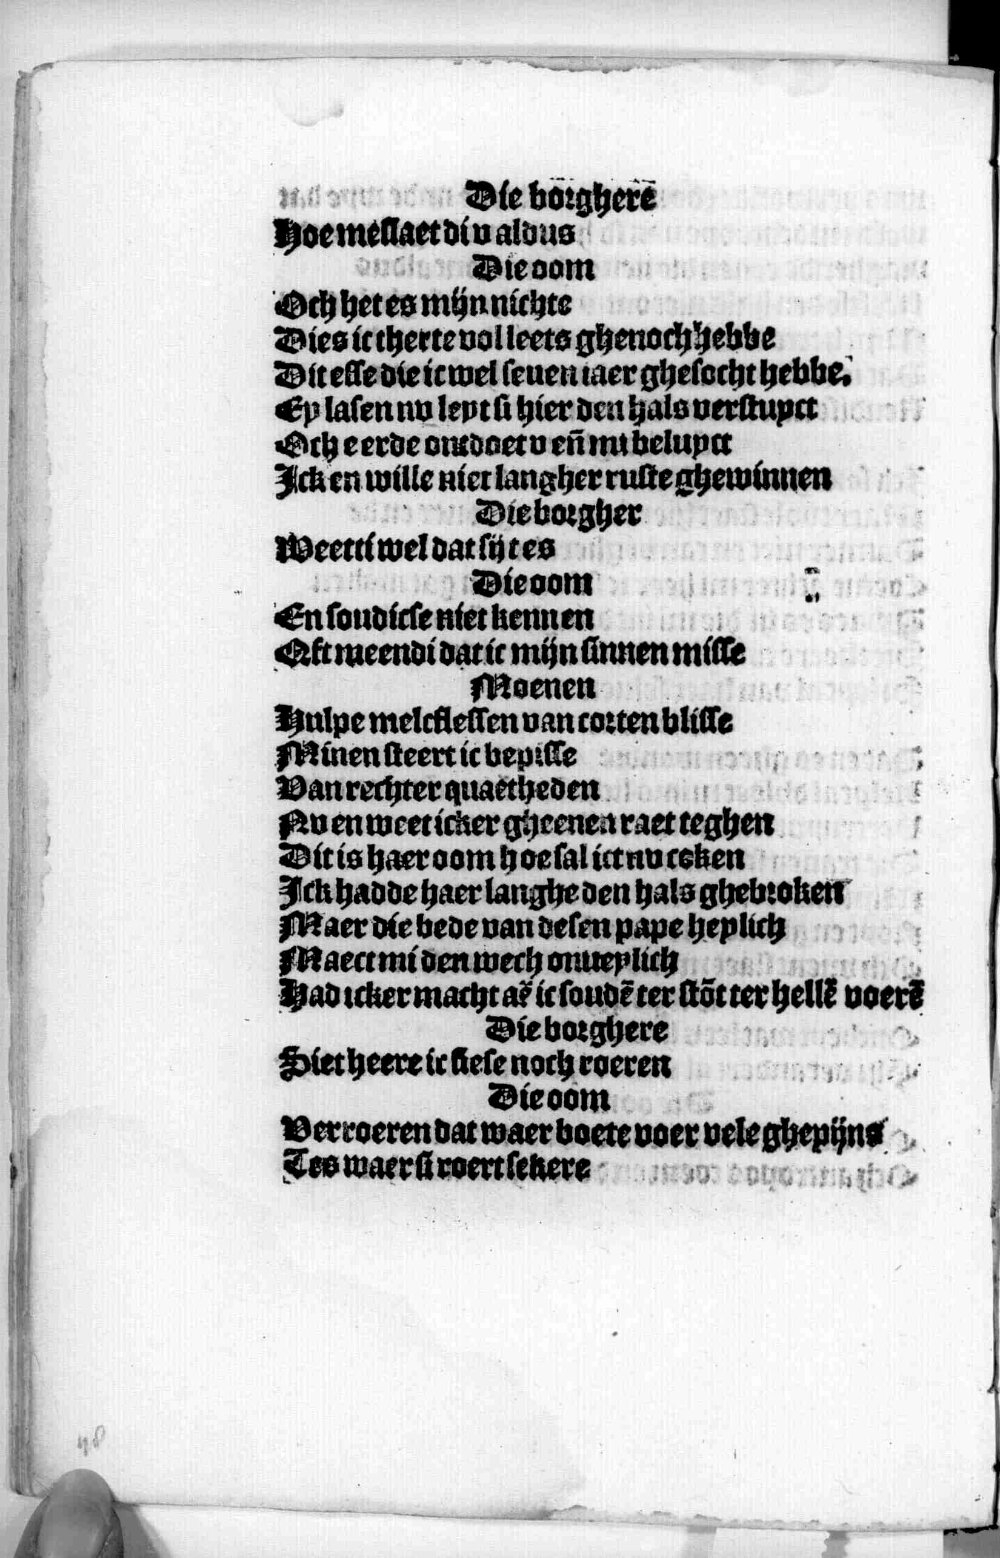 Die borgherē
Hoe meslaet di v aldus
Die oom
Och het es mijn nichte
Dies ic therte vol leets ghenoch hebbe
Dit esse die ic wel seuen iaer ghesocht hebbe.
Ey lasen nv leyt si hier den hals verstuyct
Och eerde ontdoet v eñ mi beluyct
Ick en wille niet langher ruste ghewinnen
Die borgher
Weetti wel dat sijt es
Die oom
En soudicse niet kennen
Oft meendi dat ic mijn sinnen misse
Moenen
Hulpe melcflessen van corten blisse
Minen steert ic bepisse
Van rechter quaetheden
Nv en weet icker gheenen raet teghen
Dit is haer oom hoe sal ict nv coken
Ick hadde haer langhe den hals ghebroken
Maer die bede van desen pape heylich
Maect mi den wech onueylich
Had icker macht aē ic soudē ter stōt ter hellē voerē
Die borghere
Siet heere ic siese noch roeren
Die oom
Verroeren dat waer boete voer vele ghepijns
Tes waer si roert sekere
48